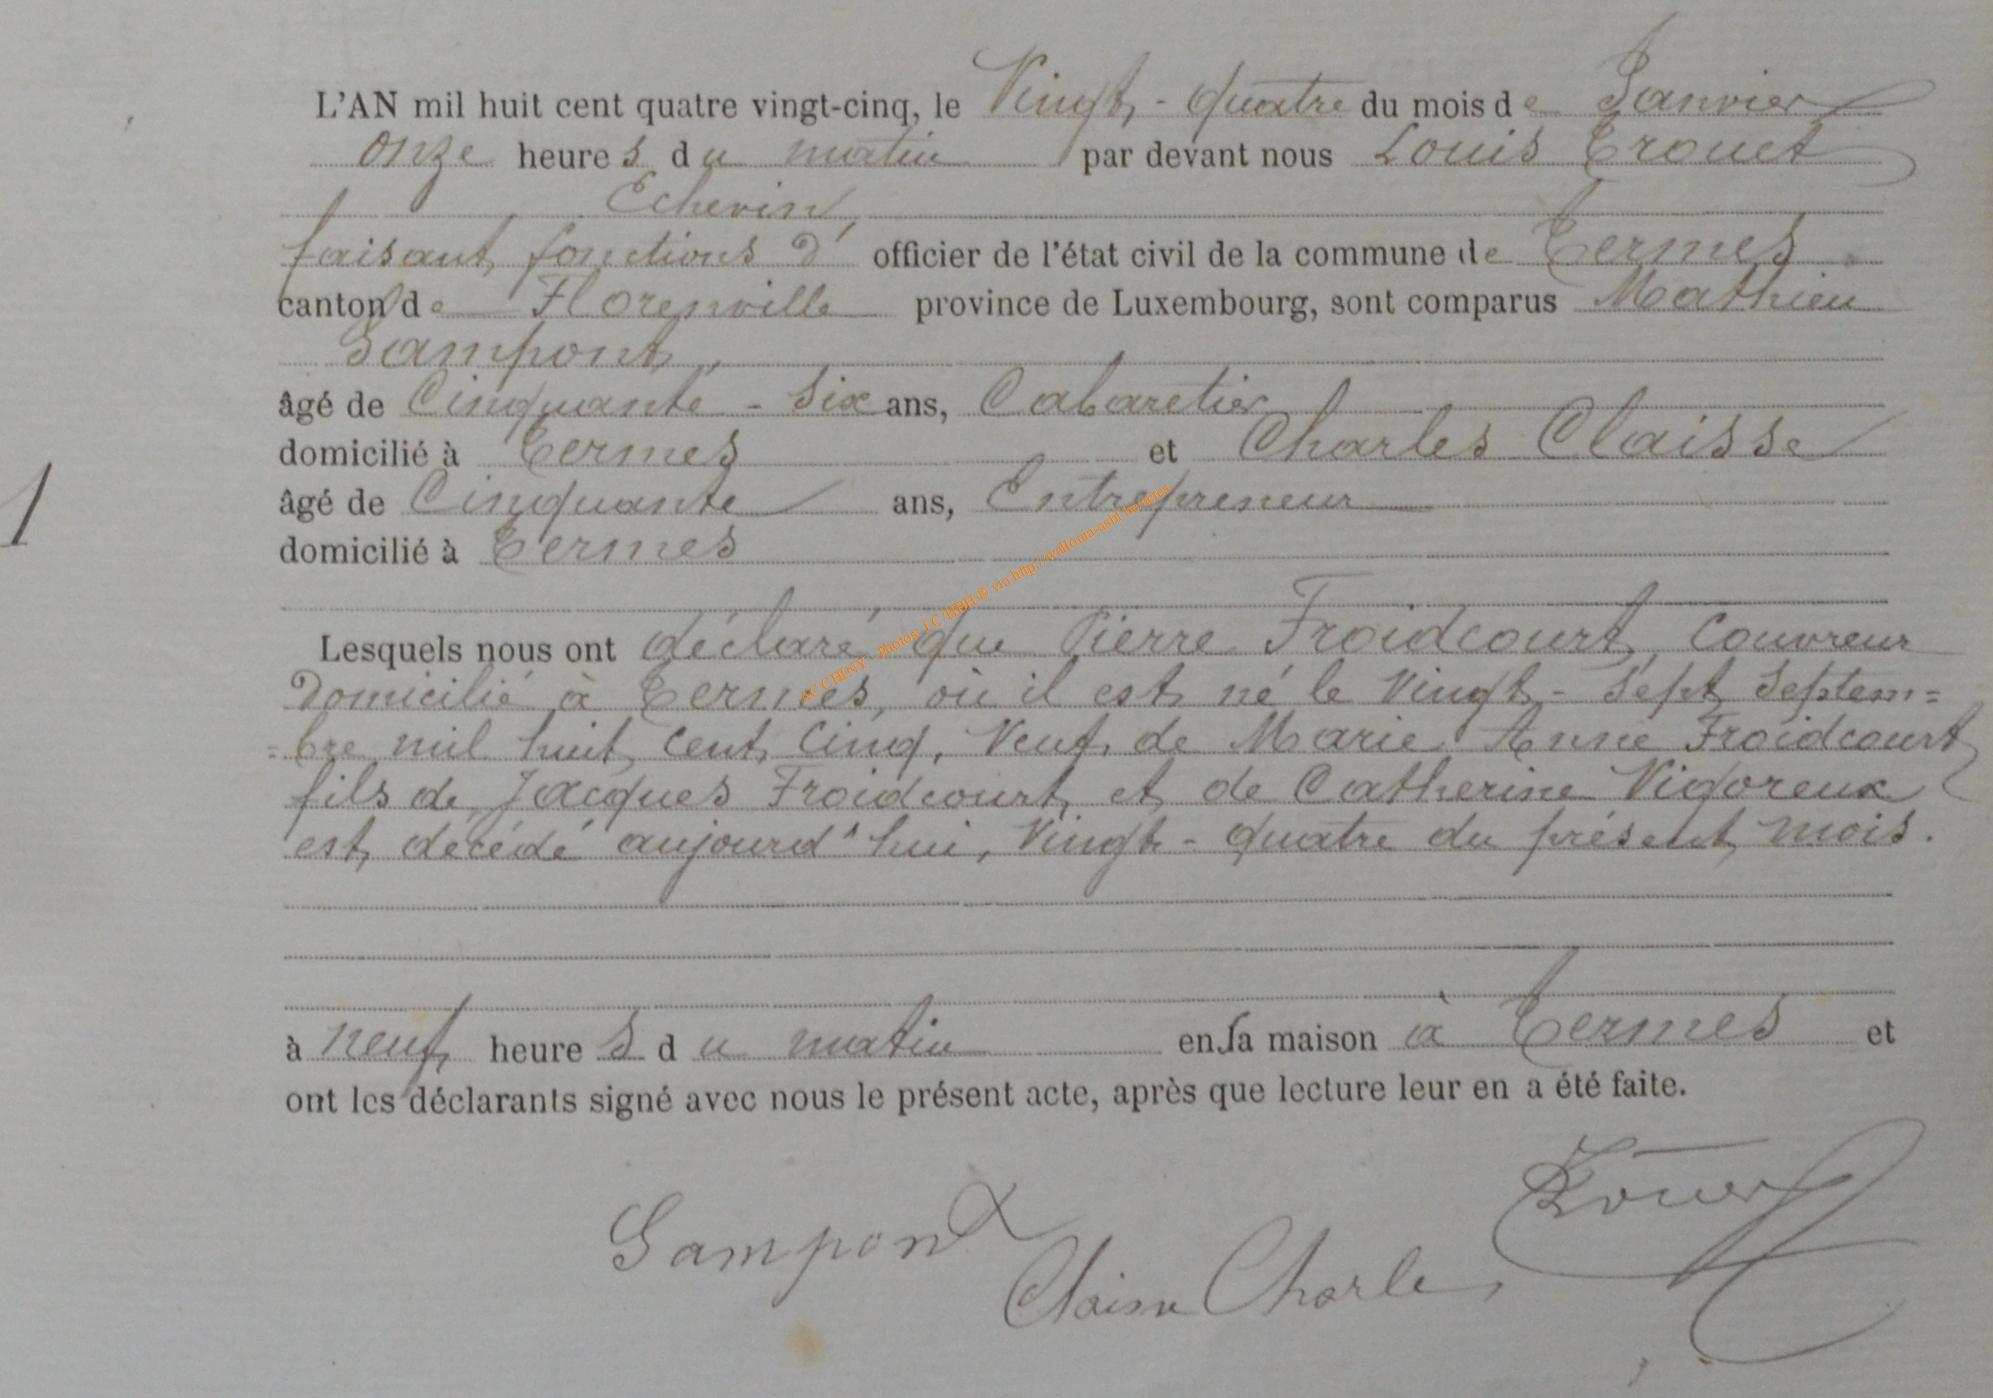 L'AN mil huit cent quatre vingt-cinq, le Vingt-quatre du mois de Janvier
onze heures du matin par devant nous Louis Trouet
Echevin,
faisant fonctions d' officier de l'état civil de la commune de Termes
canton de Florenville province de Luxembourg, sont comparus Mathieu
Sampont,
âgé de Cinquante-Six ans, Cabaretier
domicilié à Termes et Charles Claisse
âgé de Cinquante ans, Entrepreneur
domicilié à Termes
Lesquels nous ont déclaré que Pierre Froidcourt, Couvreur
Domicilié à Termes, où il est né le Vingt-Sept Septem=
=bre mil huit cent cinq, Veuf de Marie Anne Froidcourt
fils de Jacques Froidcourt et de Catherine Vigoreux
est décédé aujourd'hui, Vingt-quatre du présent mois.
à neuf heures du matin en sa maison à Termes et
ont les déclarants signé avec nous le présent acte, après que lecture leur en a été faite.
Sampont
Claisse Charles
1
AC CHINY - Photos J.CAHBH © via http://wallonia-asbl.be/actes